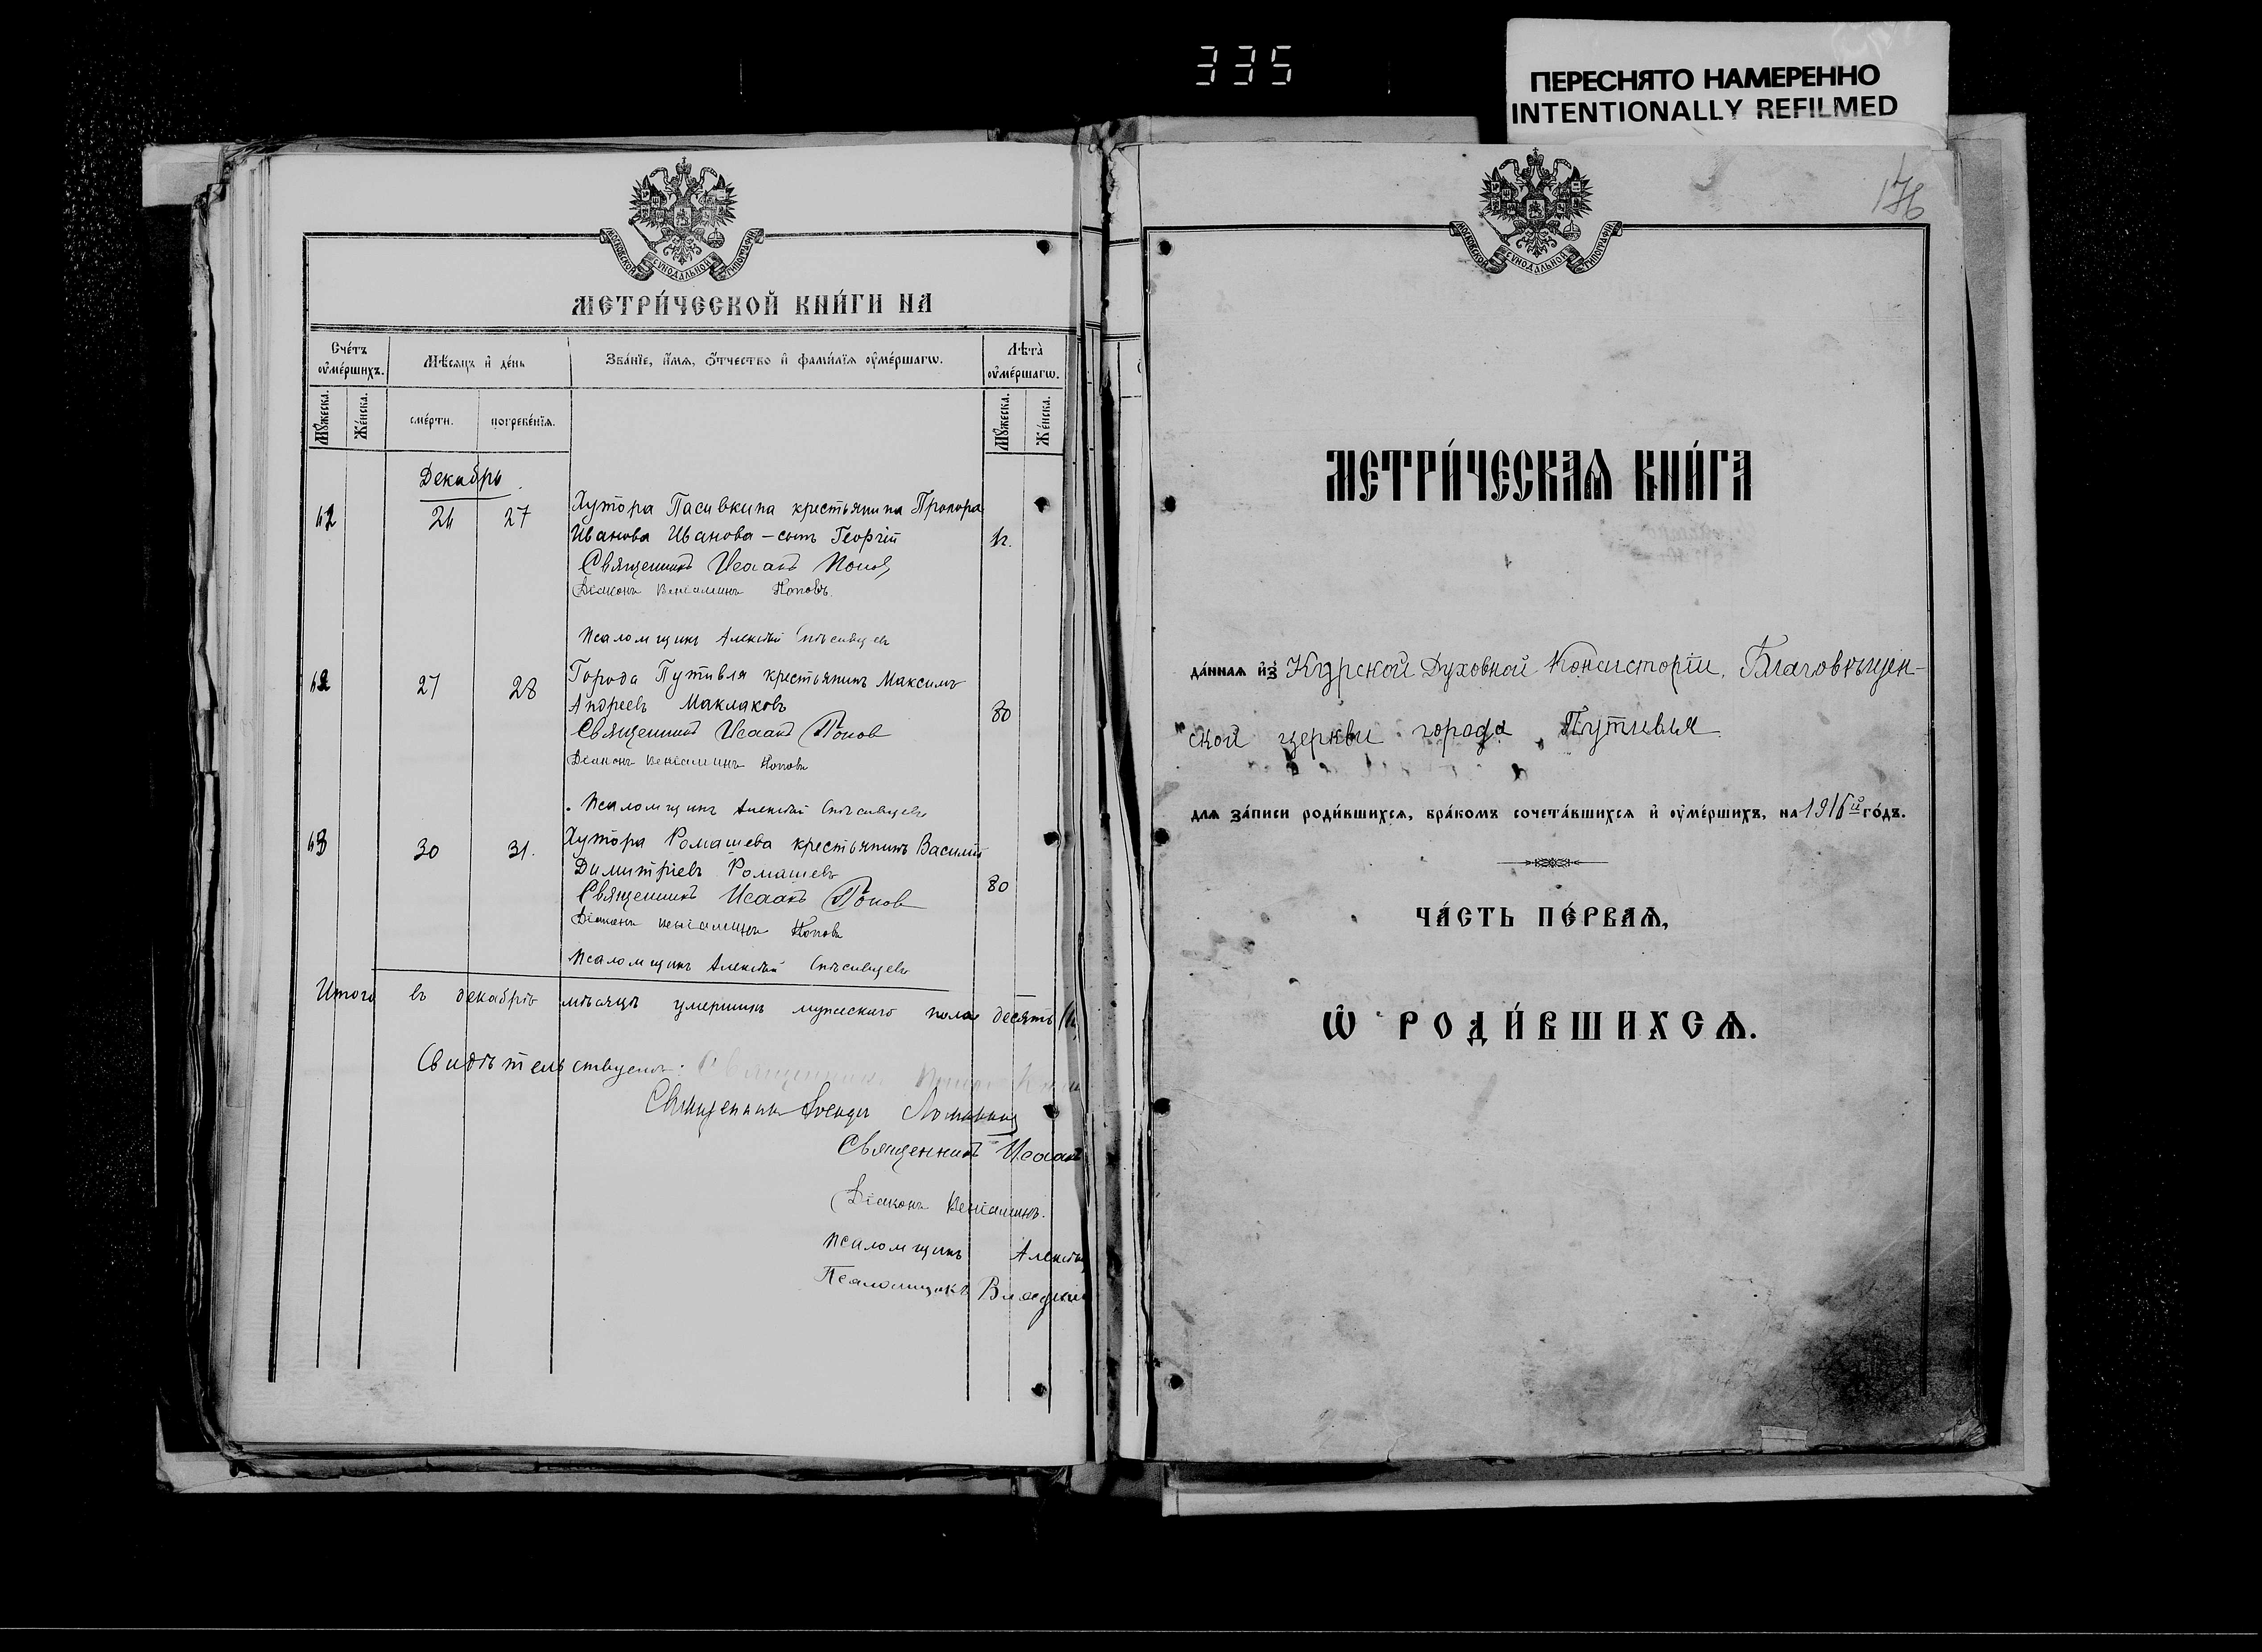 335
ПЕРЕСНЯТО НАМЕРЕННО
INTENTIONALLY REFILMED
МОСКОВСКОЙ СУНОДАЛЬНОЙ ТИПОГРАФІИ
МЕТРИ́ЧЕСКОЙ КНИ́ГИ НА
Сче́тъ оу҆ме́ршихъ.
Мѣ́сяцъ и҆ де́нь
Зва́нїе, и҆́мѧ, ѻ҆́тчество и҆ фами́лїѧ оу҆ме́ршагѡ.
Лѣта̀ оу҆ме́ршагѡ.
Мꙋ́жеска.
Же́нска.
сме́рти.
погребе́нїѧ.
Мꙋ́жеска.
Же́нска.
Декабрь
27
Хутора Пасивкина крестьянина Прохора
Иванова Иванова – сынъ Георгій
Священникъ Исаакъ Попов
Діаконъ Веніаминъ Поповъ.
Псаломщикъ Алексѣй Спѣсивцевъ
27 28 Города Путивля крестьянинъ Максимъ
Андреевъ Маклаковъ 80
Священникъ Исаакъ Попов
Діаконъ Веніаминъ Поповъ
Псаломщикъ Алексѣй Спѣсивцевъ
63 30 31. Хутора Ромашева крестьянинъ Василій
Димитріевъ Ромашевъ 80
Священникъ Исаакъ Попов
Діаконъ Веніаминъ Поповъ
Псаломщикъ Алексѣй Спѣсивцевъ
Итого въ декабрѣ мѣсяцѣ умершихъ мужескаго пола десять
Свидѣтельствуемъ:
Священникъ
Священникъ Исаакъ
Діаконъ Веніаминъ
Псаломщикъ Алексѣй
Псаломщикъ
176
МОСКОВСКОЙ СУНОДАЛЬНОЙ ТИПОГРАФІИ
МЕТРИ́ЧЕСКАѦ КНИ́ГА
да́ннаѧ и҆з̾ Курской Духовной Консисторіи, Благовѣщен-
ской церкви города Путивля
для за́писи роди́вшихсѧ, бра́комъ сочета́вшихсѧ и҆ оу҆ме́ршихъ, на 1916й го́дъ.
ЧА́СТЬ ПЕ́РВАѦ,
Ѡ҆ РОДИ́ВШИХСѦ.